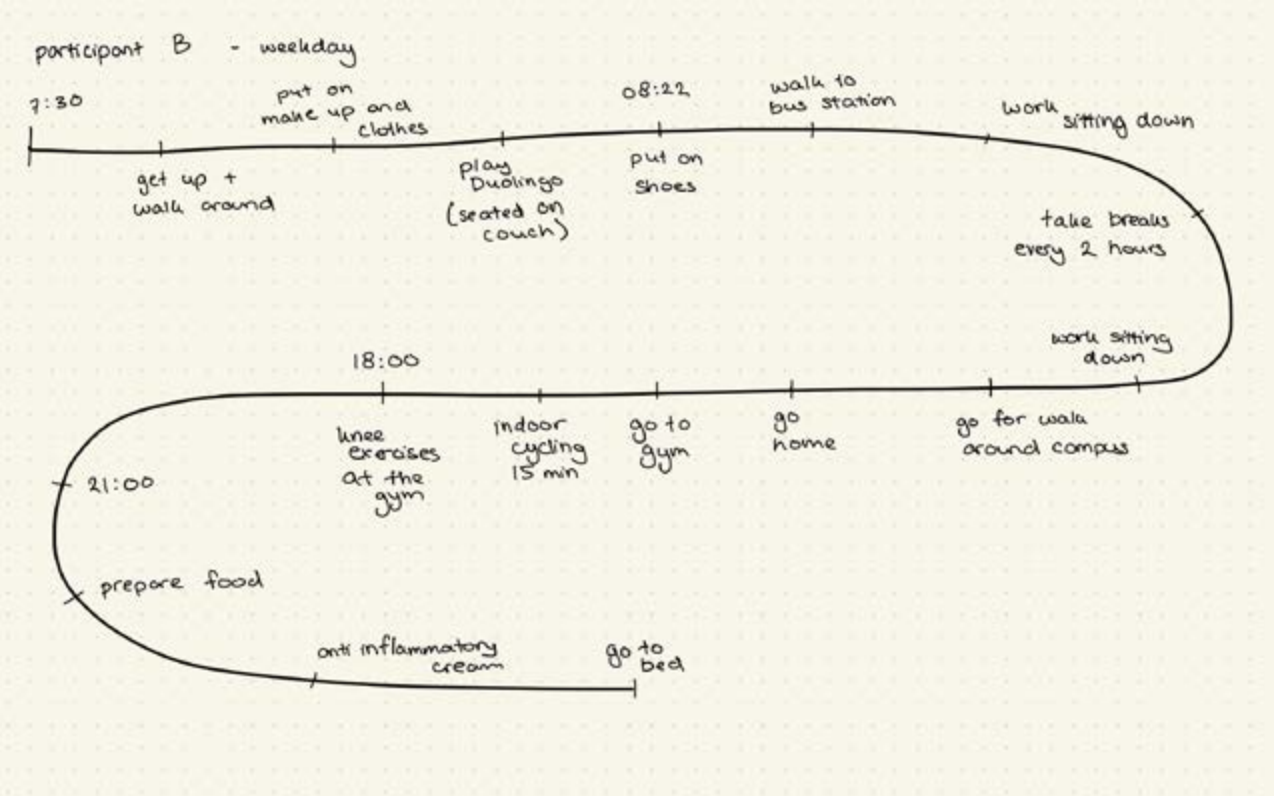 participant B - weekday
7:30
get up +
walk around
put on
make up and
clothes
play
Duolingo
(seated on
couch)
08:22
put on
shoes
walk to
bus station
work
sitting down
take breaks
every 2 hours
work sitting
down
go for walk
around campus
go
home
go to
gym
indoor
cycling
15 min
18:00
knee
exercises
at the
gym
21:00
prepare food
anti inflammatory
cream
go to
bed